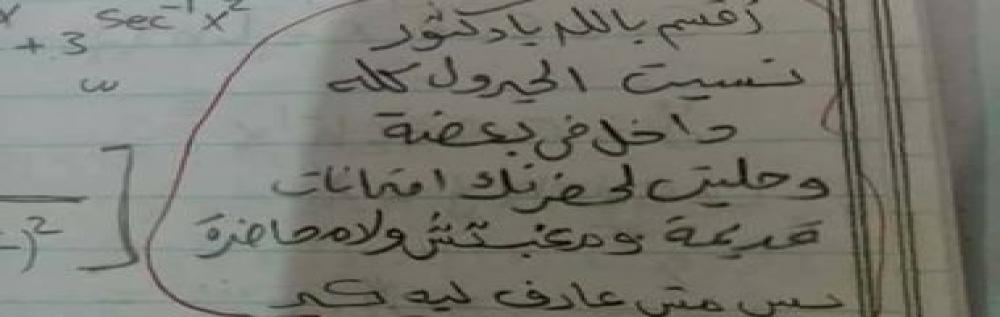 + 3 sec⁻¹x²
أقسم بالله يا دكتور
نسيت الجدول كله
داخل في بعضة
وحليت لحضرتك امتحانات
قديمة ومغبتش ولا محاضرة
بس مش عارف ليه كده
)²